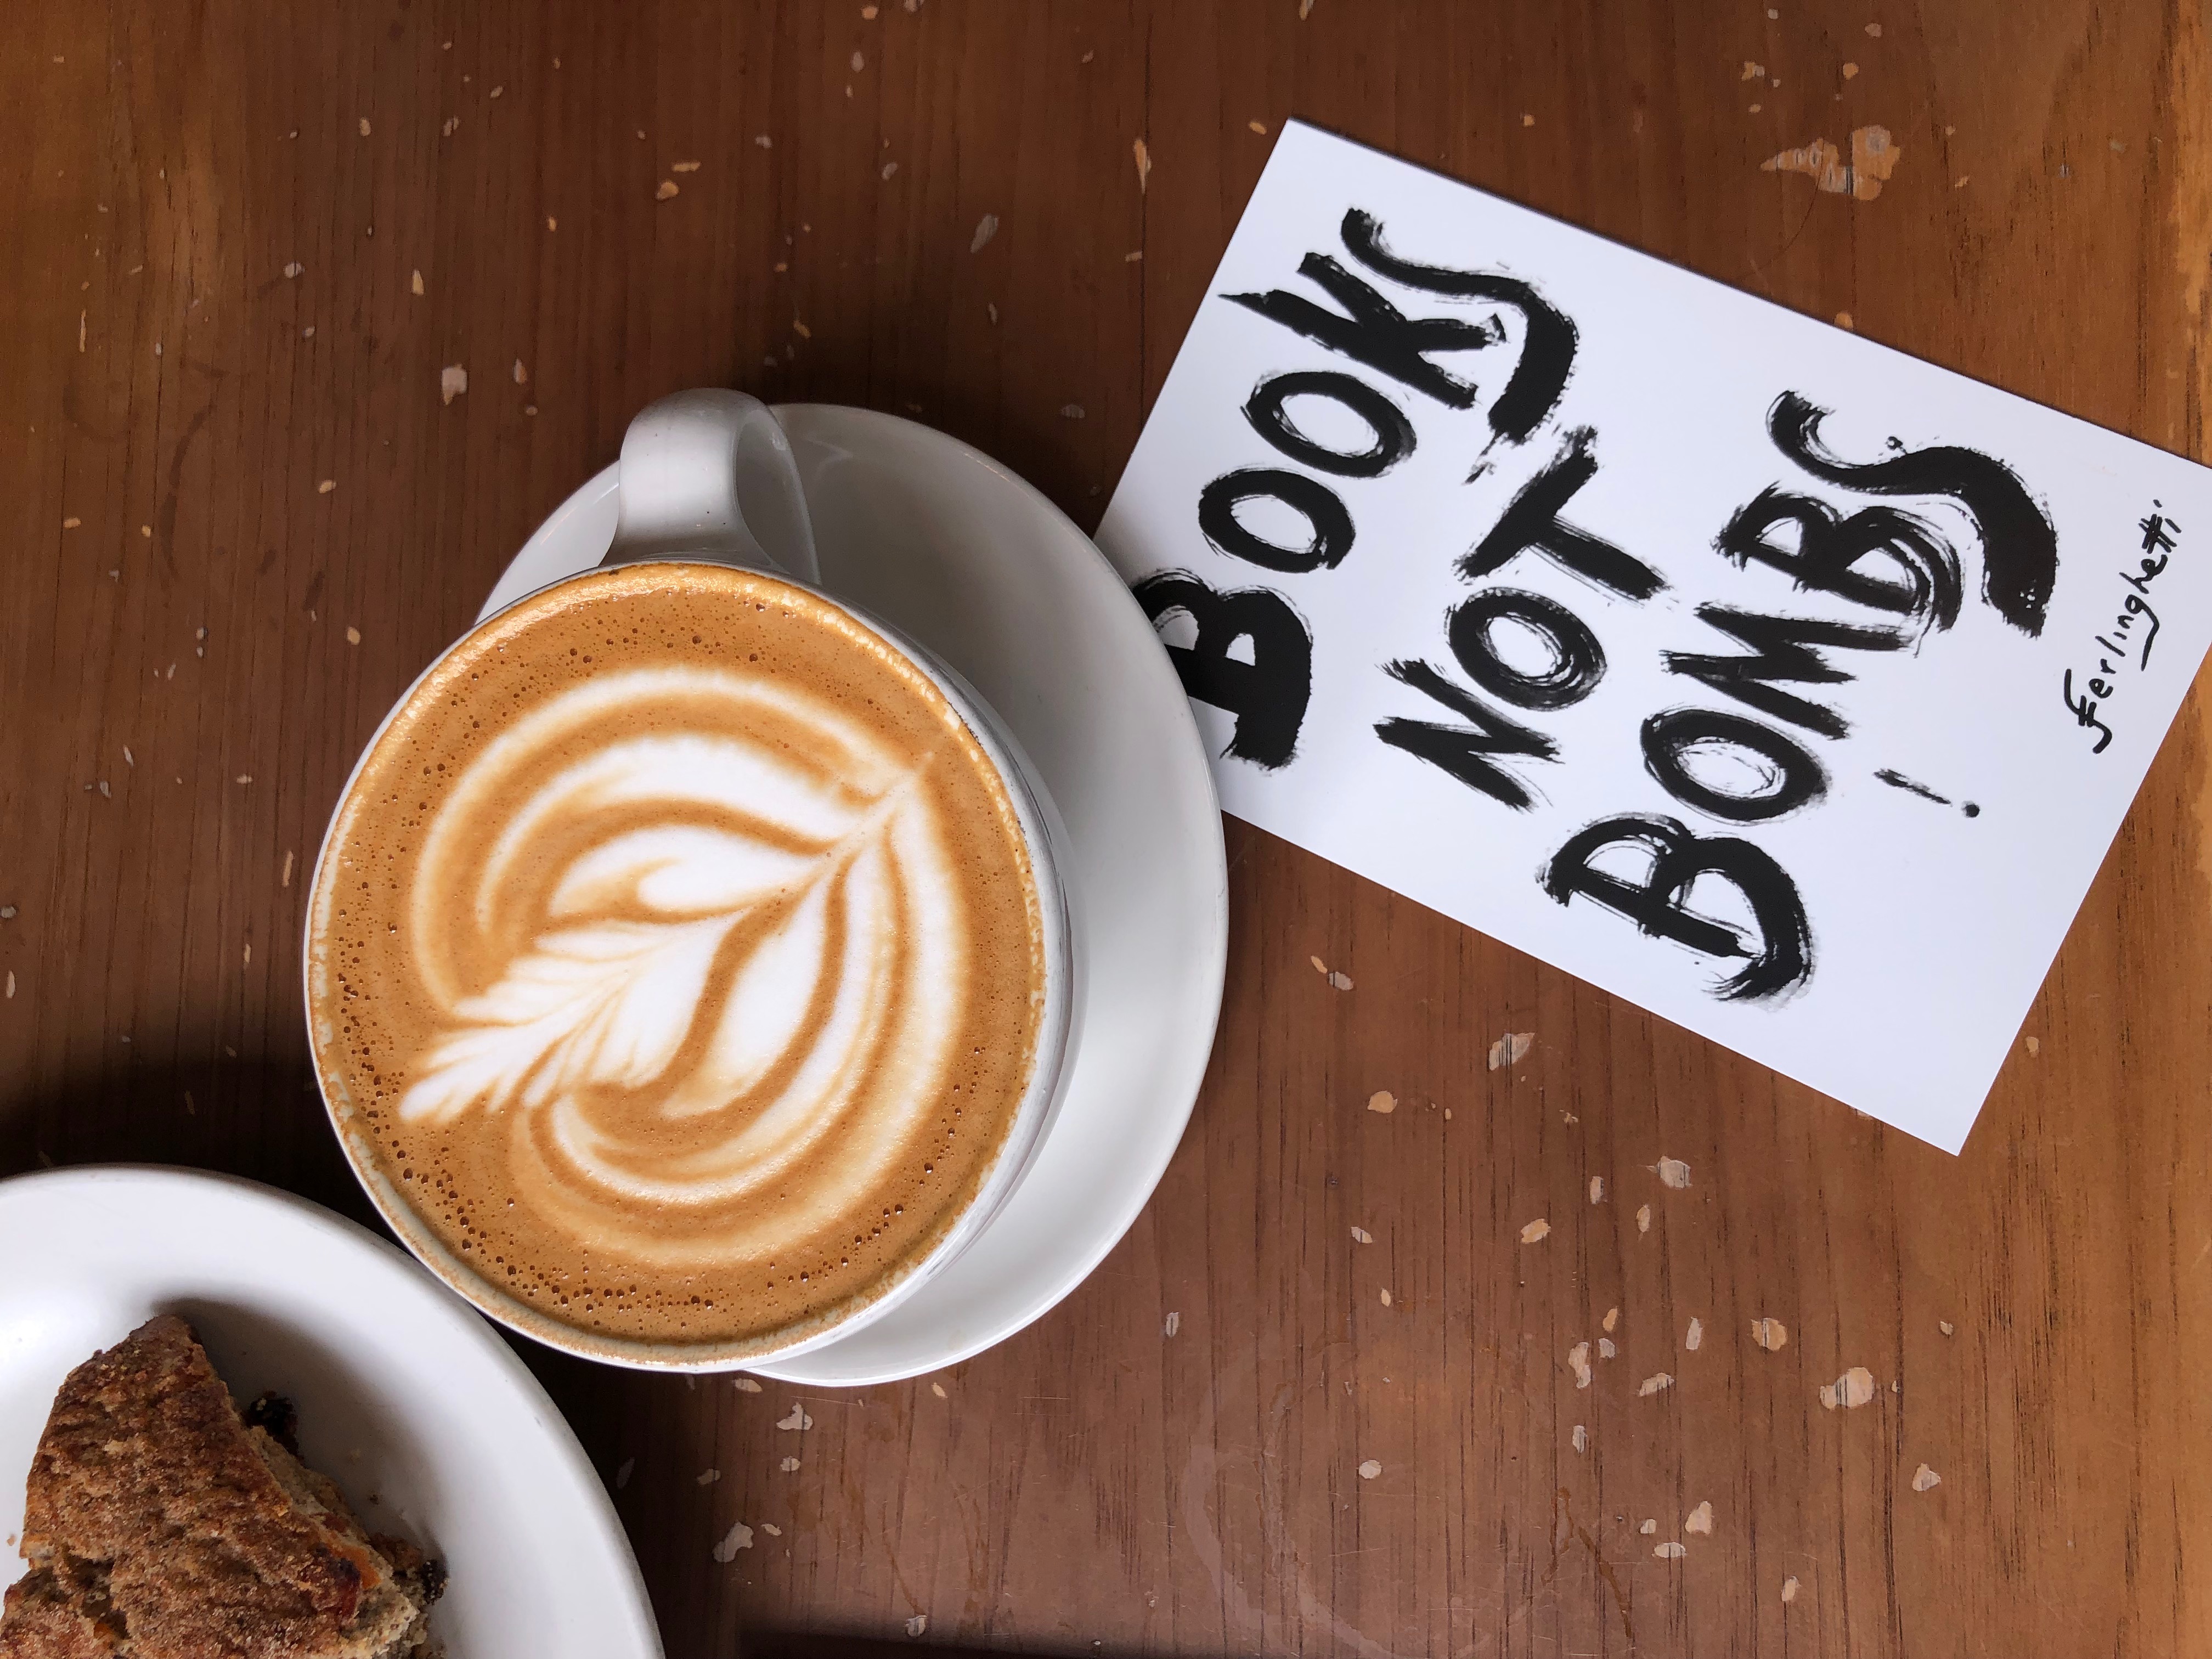 BOOKS
NOT
BOMBS
!
Ferlinghetti